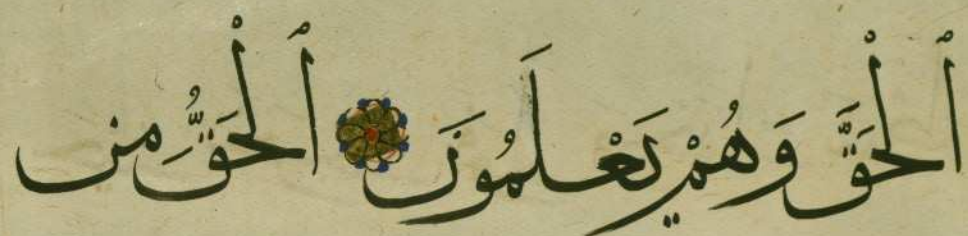 ٱلْحَقَّ وَهُمْ يَعْلَمُونَ ٱلْحَقُّ مِن